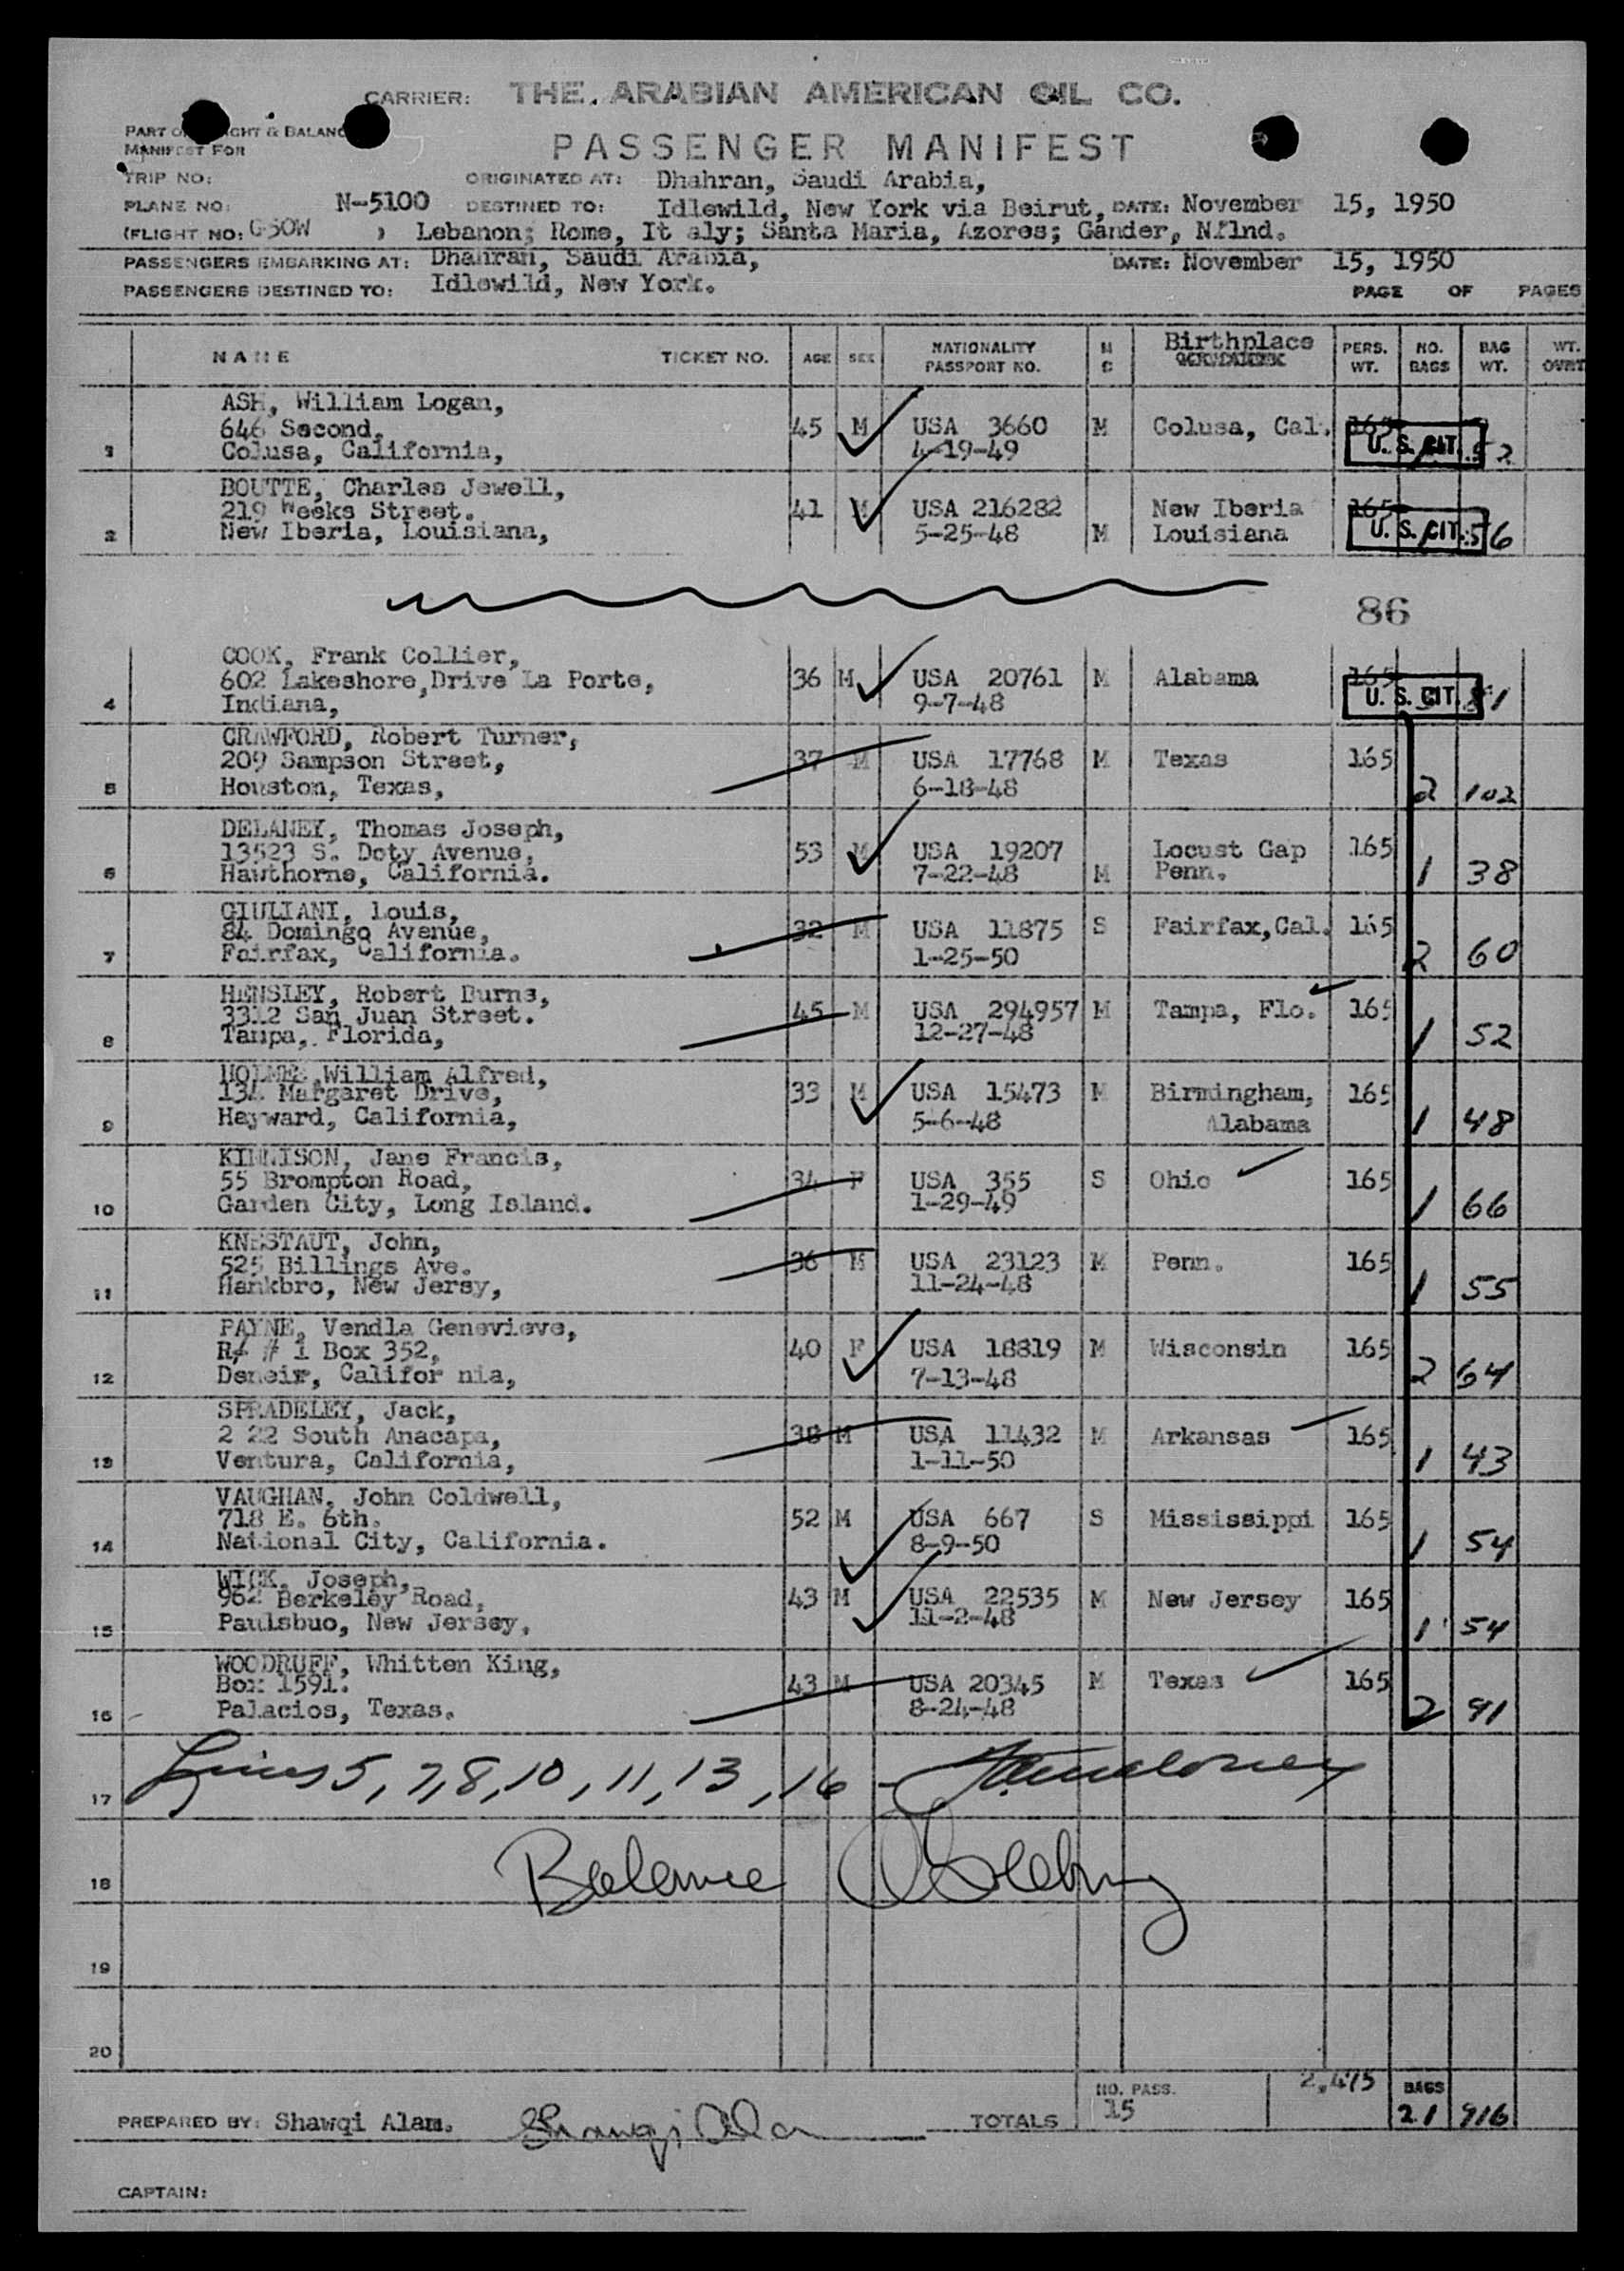 CARRIER: THE ARABIAN AMERICAN OIL CO.
MANIFEST FOR
PASSENGER MANIFEST
TRIP NO: ORIGINATED AT: Dhahran, Saudi Arabia,
PLANE NO: N-5100 DESTINED TO: Idlewild, New York via Beirut, DATE: November 15, 1950
(FLIGHT NO: ) Lebanon; Rome, It aly; Santa Maria, Azores; Gander, Nflnd.
PASSENGERS EMBARKING AT: Dhahran, Saudi Arabia, DATE: November 15, 1950
PASSENGERS DESTINED TO: Idlewild, New York. PAGE OF PAGES
NAME TICKET NO. AGE SEX NATIONALITY PASSPORT NO. M C Birthplace PERS. WT. NO. BAGS BAG WT. WT.
ASH, William Logan,
646 Second, 45 M USA 3660 M Colusa, Cal. 165
1 Colusa, California, 4-19-49 U. S. CIT. 52
BOUTTE, Charles Jewell,
219 Weeks Street. 41 M USA 216282 New Iberia 165
2 New Iberia, Louisiana, 5-25-48 M Louisiana U. S. CIT. 56
86
COOK, Frank Collier,
602 Lakeshore,Drive La Porte, 36 M USA 20761 M Alabama 165
4 Indiana, 9-7-48 U. S. CIT. 81
CRAWFORD, Robert Turner,
209 Sampson Street, 37 M USA 17768 M Texas 165
5 Houston, Texas, 6-18-48 2 102
DELANEY, Thomas Joseph,
13523 S. Doty Avenue, 53 M USA 19207 Locust Gap 165
6 Hawthorne, California. 7-22-48 M Penn. 1 38
GIULIANI, louis,
84 Domingo Avenue, 32 M USA 11875 S Fairfax,Cal. 165
7 Fairfax, California. 1-25-50 2 60
HENSLEY, Robert Burns,
3312 San Juan Street. 45 M USA 294957 M Tampa, Flo. 165
8 Tampa, Florida, 12-27-48 1 52
HOLMES,William Alfred,
134 Margaret Drive, 33 M USA 15473 M Birmingham, 165
9 Hayward, California, 5-6-48 Alabama 1 48
KINNISON, Jane Francis,
55 Brompton Road, 34 F USA 355 S Ohio 165
10 Garden City, Long Island. 1-29-49 1 66
KNESTAUT, John,
525 Billings Ave. 36 M USA 23123 M Penn. 165
11 Hankbro, New Jersy, 11-24-48 1 55
PAYNE, Vendla Genevieve,
R/ # 1 Box 352, 40 F USA 18819 M Wisconsin 165
12 Deneir, Califor nia, 7-13-48 2 64
SPRADELEY, Jack,
2 22 South Anacapa, 38 M USA 11432 M Arkansas 165
13 Ventura, California, 1-11-50 1 43
VAUGHAN, John Coldwell,
718 E. 6th. 52 M USA 667 S Mississippi 165
14 National City, California. 8-9-50 1 54
WICK, Joseph,
962 Berkeley Road, 43 M USA 22535 M New Jersey 165
15 Paulsbuo, New Jersey, 11-2-48 1 54
WOODRUFF, Whitten King,
Box 1591. 43 M USA 20345 M Texas 165
16 Palacios, Texas. 8-24-48 2 91
17 Lines 5, 7, 8, 10, 11, 13, 16 -
18 Balance
19
20
NO. PASS. 2,475 BAGS
PREPARED BY: Shawqi Alam. Shawqi Ala TOTALS 15 21 916
CAPTAIN: